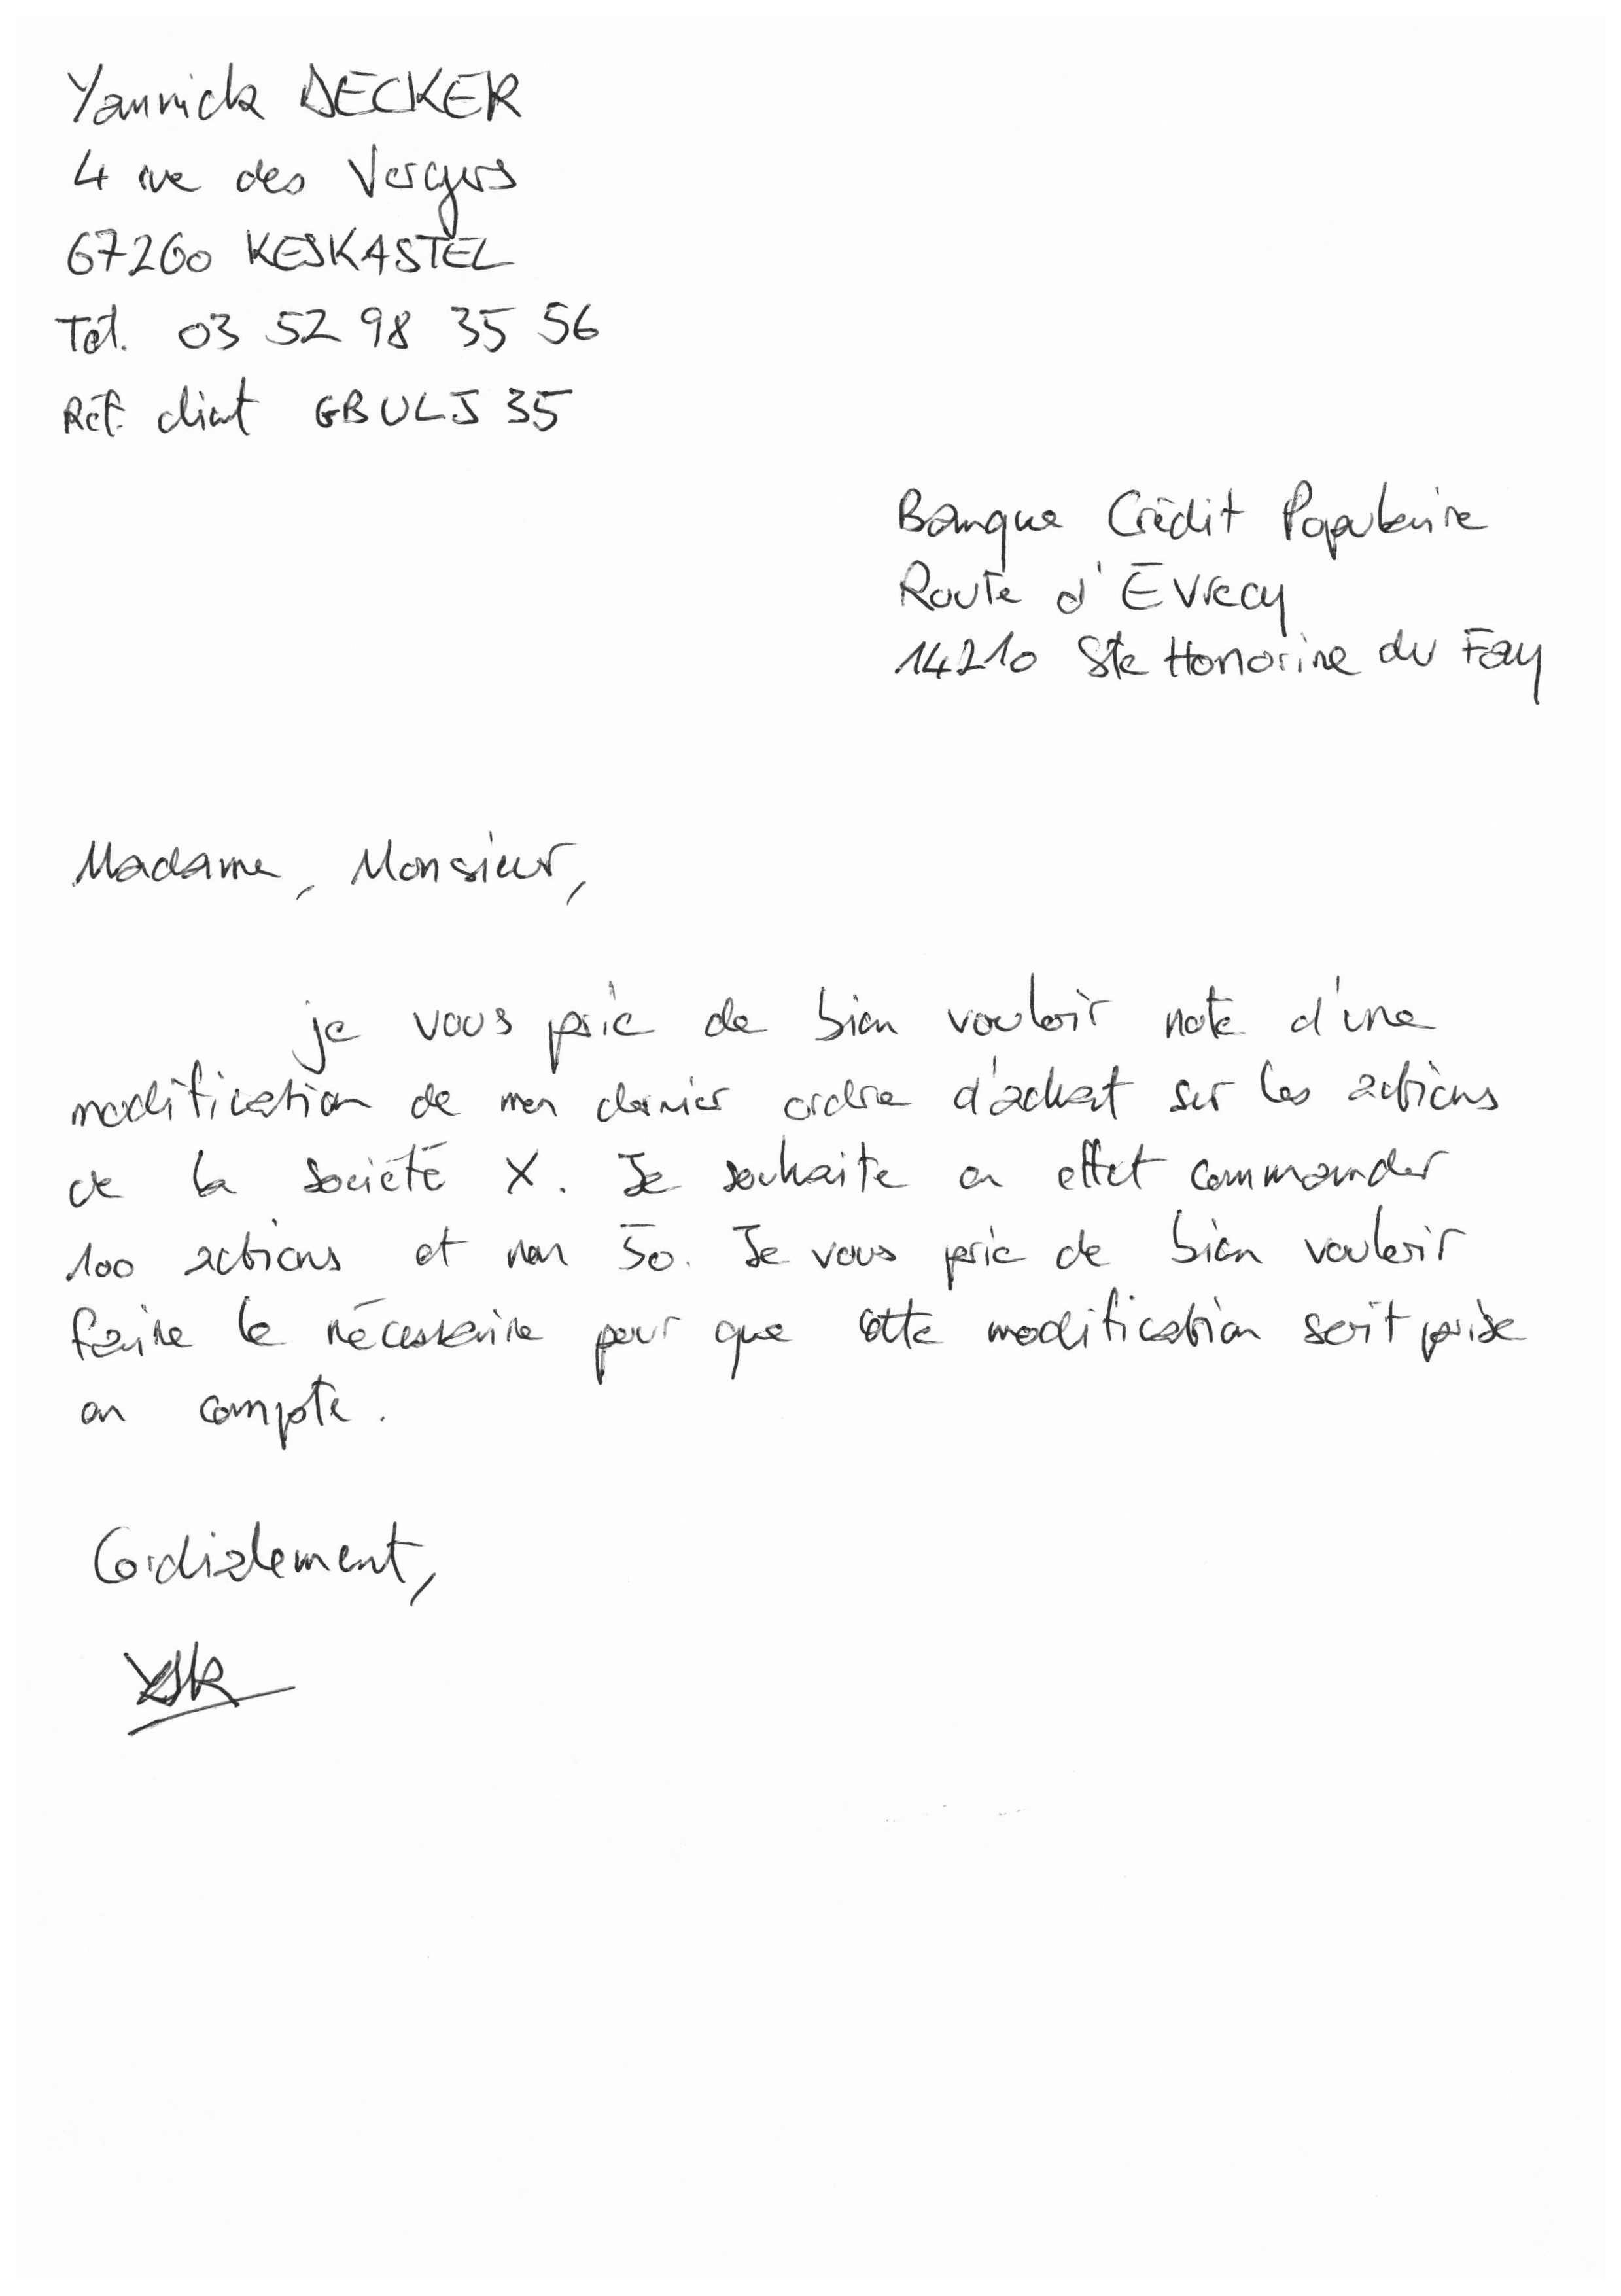 Yannick DECKER
4 rue des Vergers
67260 KESKASTEL
Tél. 03 52 98 35 56
Réf. client GBULJ 35
Banque Crédit Populaire
Route d'Evrecy
14210 Ste Honorine du Fay
Madame, Monsieur,
je vous prie de bien vouloir note d'une
modification de mon dernier ordre d'achat sur les actions
de la société X. Je souhaite en effet commander
100 actions et non 50. Je vous prie de bien vouloir
faire le nécessaire pour que cette modification soit prise
en compte.
Cordialement,